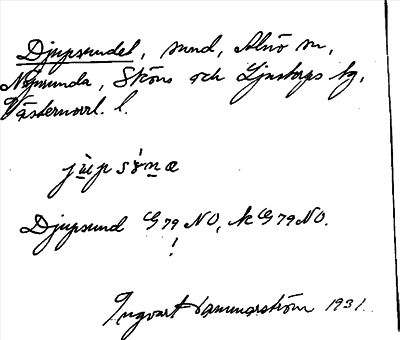 Djupsundet, sund, Alnö sn,
Njurunda, Sköns och Ljustorps tg,
Västernorrl. l.
jùpsúnæ
Djupsund G 79 NO, k G 79 NO.
!
Ingvart Hammarström 1931.